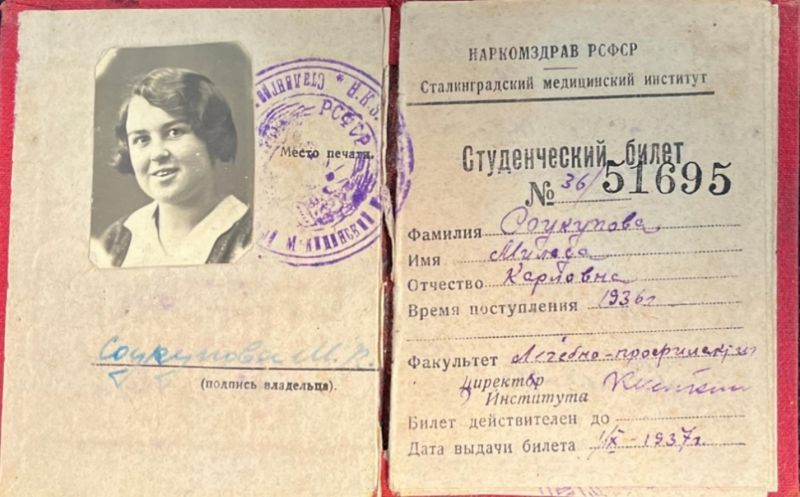 Место печати.
РСФСР
Соукупова М. К.
(подпись владельца).
НАРКОМЗДРАВ РСФСР
Сталинградский медицинский институт
Студенческий билет
№ 36/51695
Фамилия Соукупова
Имя Милада
Отчество Карловна
Время поступления 1936 г
Факультет Лечебно-профилакт
Директор
Института
Билет действителен до
Дата выдачи билета 1/IX-1937г.